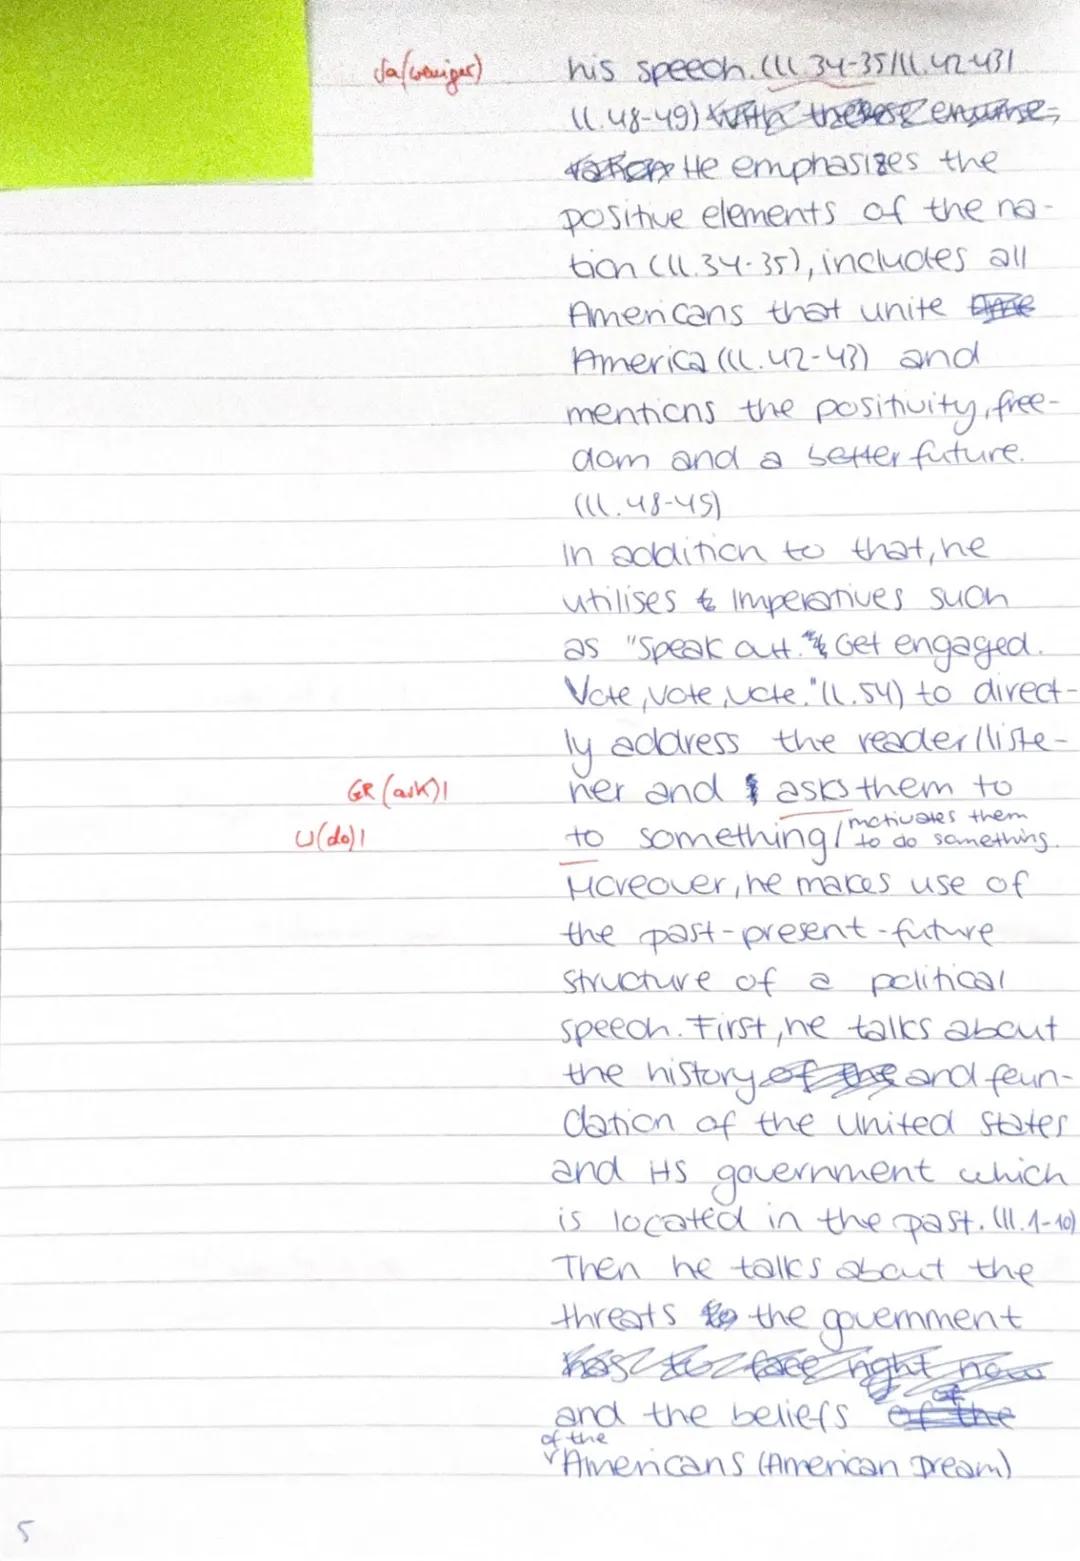 Ja (weniger)
his speech. (ll. 34-35/ll. 42-43/
ll. 48-49) He emphasizes the
positive elements of the na-
tion (ll. 34-35), includes all
Americans that unite
America (ll. 42-43) and
mentions the positivity, free-
dom and a better future.
(ll. 48-49)
In addition to that, he
utilises Imperatives such
as "Speak out. Get engaged.
Vote, vote, vote." (l. 54) to direct-
ly address the reader/liste-
GR (ask) |
ner and asks them to
U (do) |
to something / motivates them
to do something.
Moreover, he makes use of
the past-present-future
structure of a political
speech. First, he talks about
the history and foun-
dation of the United States
and its government which
is located in the past. (ll. 1-10)
Then he talks about the
threats to the government
and the beliefs
of the
Americans (American Dream)
5